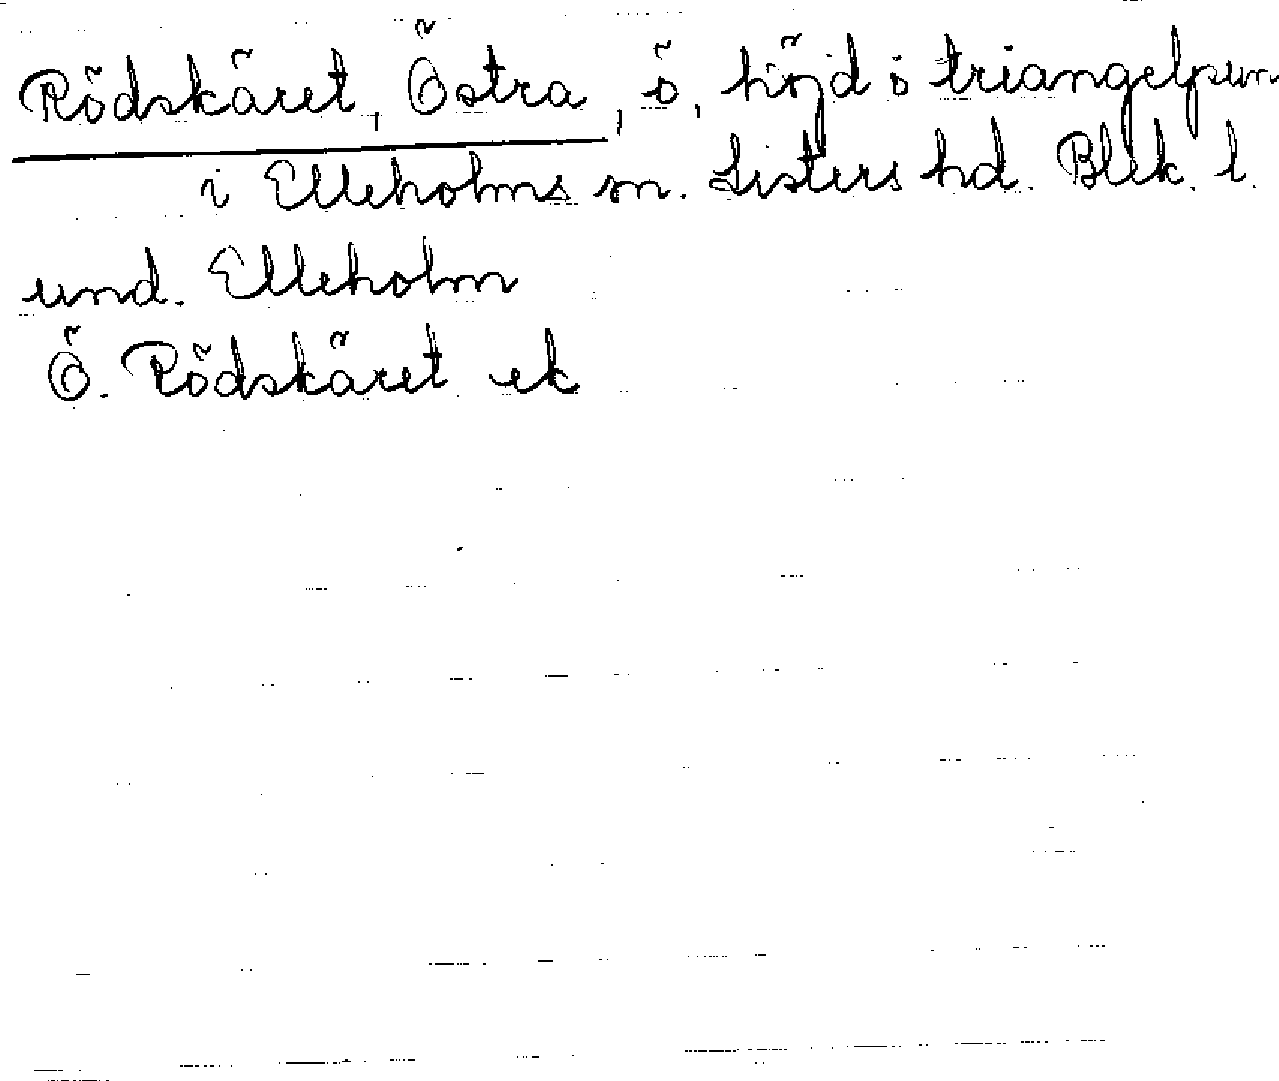 Rödskäret, Östra, ö, höjd o triangelpun
i Elleholms sn. Listers hd. Blek. l.
und. Elleholm
Ö. Rödskäret ek